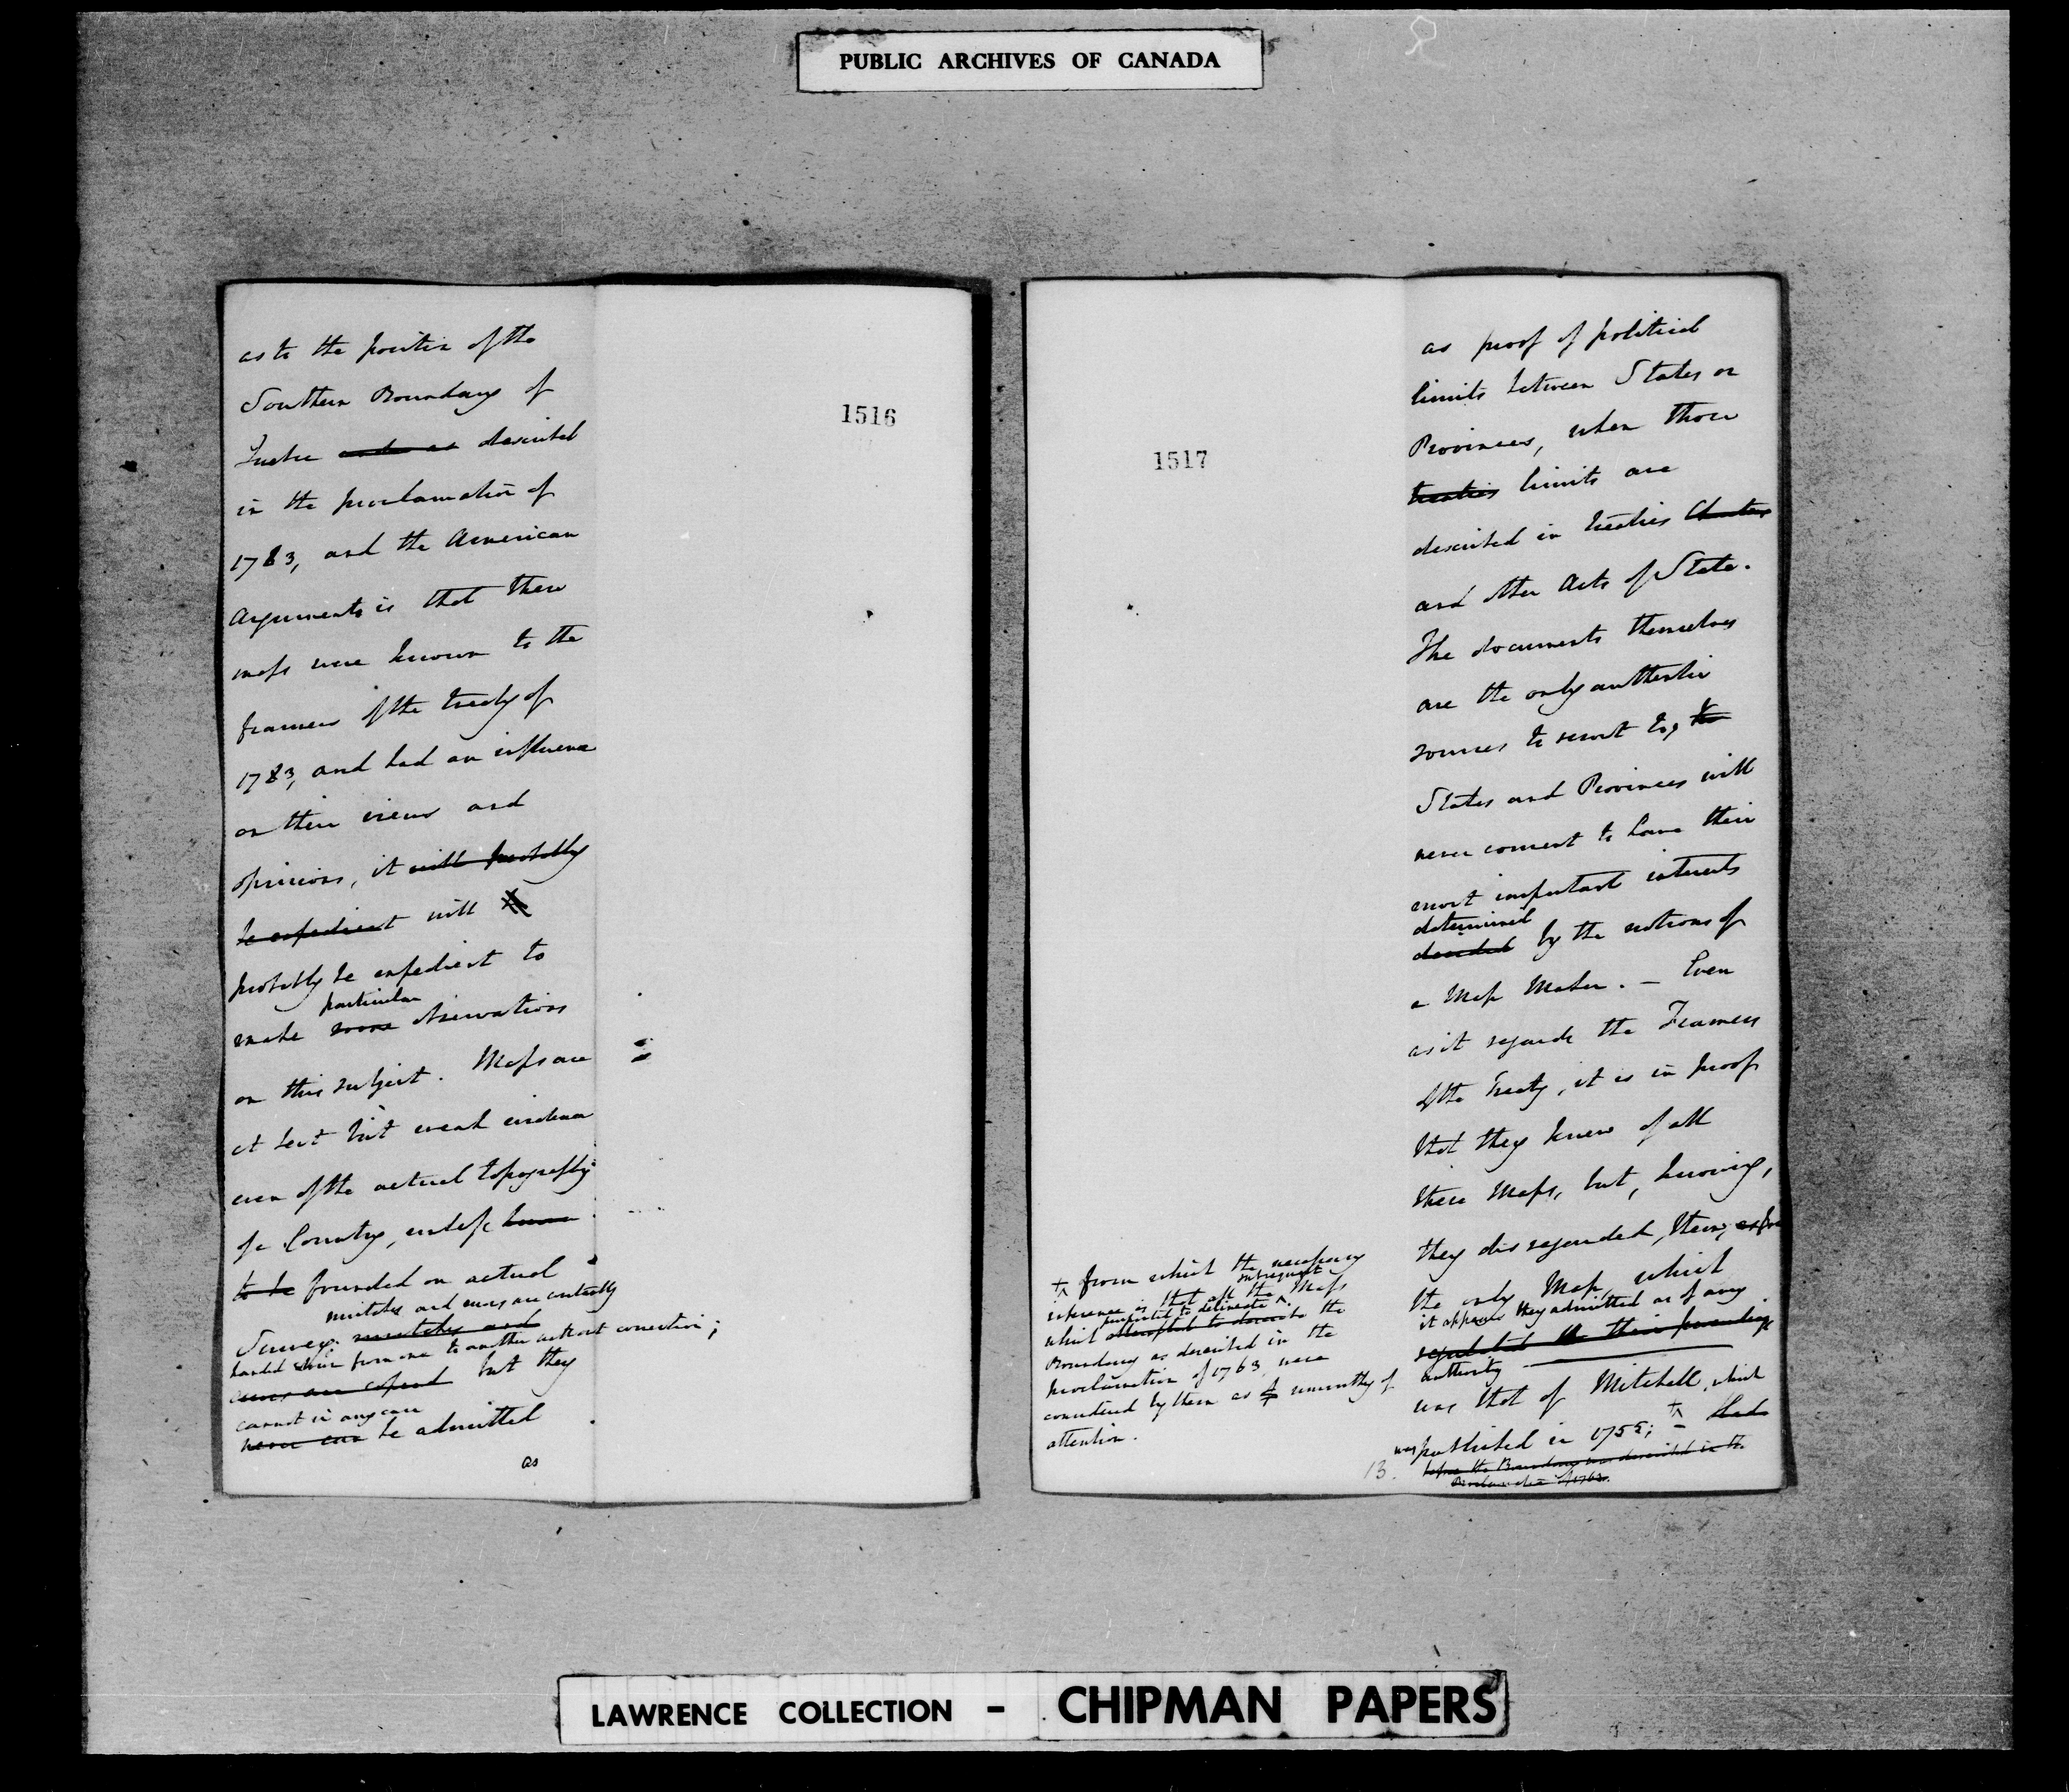 PUBLIC ARCHIVES OF CANADA
as to the position of the
Southern Boundary of
1516
described
in the proclamation of
1783, and the American
Arguments is that these
maps were known to the
framers of the treaty of
1783, and had an influence
on their views and
opinions, it will probably
be expedient will
probably be expedient to
particular
make some observations
on this subject. Maps are
at best but weak evidence
even of the actual topography
of a Country, unless
to be founded on actual
mistakes and errors are continually
Survey: mistakes and
handed down from one to another without correction;
errors are copied but they
cannot in any case
never can be admitted
as
1517
as proof of political
limits between States or
Provinces, when those
treaties limits are
described in treaties Charters
and other Acts of State.
The documents themselves
are the only authentic
sources to resort to,
States and Provinces will
never consent to have their
most important interests
determined
decided by the notions of
a Map Maker. – Even
as it regards the Framers
of the Treaty, it is in proof
that they knew of all
these Maps, but, knowing,
they disregarded, them,
the only Map, which
it appears they admitted as of any
regulated their proceedings
authority
was that of Mitchell, which
was published in 1755;
before the Boundary was described in the
Proclamation of 1763.
from which the necessary
subsequent
inference is that all the Maps
purported to delineate
which attempted to describe the
Boundary as described in the
proclamation of 1763, were
considered by them as unworthy of
attention.
13.
LAWRENCE COLLECTION - CHIPMAN PAPERS